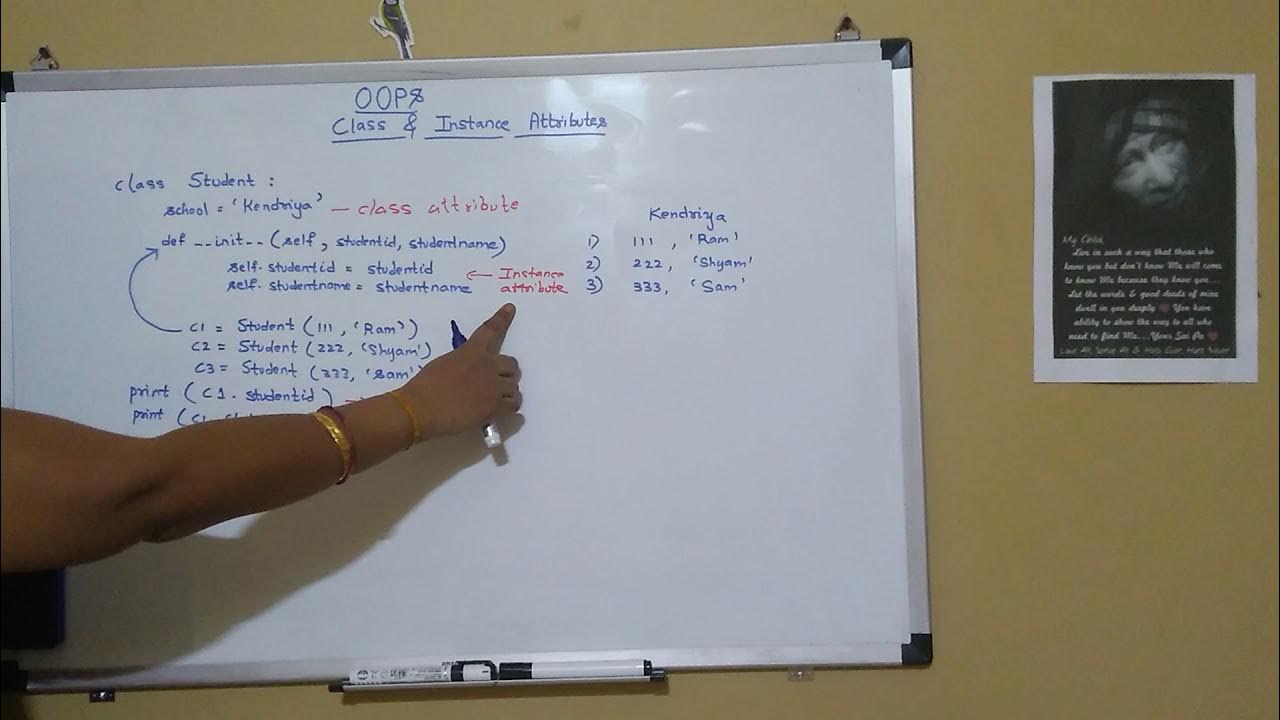 OOPs
Class & Instance Attributes
class Student :
school = 'Kendriya' — class attribute
def __init__ (self, studentid, studentname)
self. studentid = studentid
self. studentname = studentname
← Instance
attribute
C1 = Student (111, 'Ram')
C2 = Student (222, 'Shyam')
C3 = Student (333, 'Sam')
print (C1. studentid)
print (C1.
Kendriya
1) 111, 'Ram'
2) 222, 'Shyam'
3) 333, 'Sam'
My Child,
Live in such a way that those who
know you but don't know Me will come
to know Me because they know you...
Let the words & good deeds of mine
dwell in you deeply ❤ You have
ability to show the way to all who
need to find Me...Your Sai Pa ❤
Love All, Serve All & Help Ever, Hurt Never